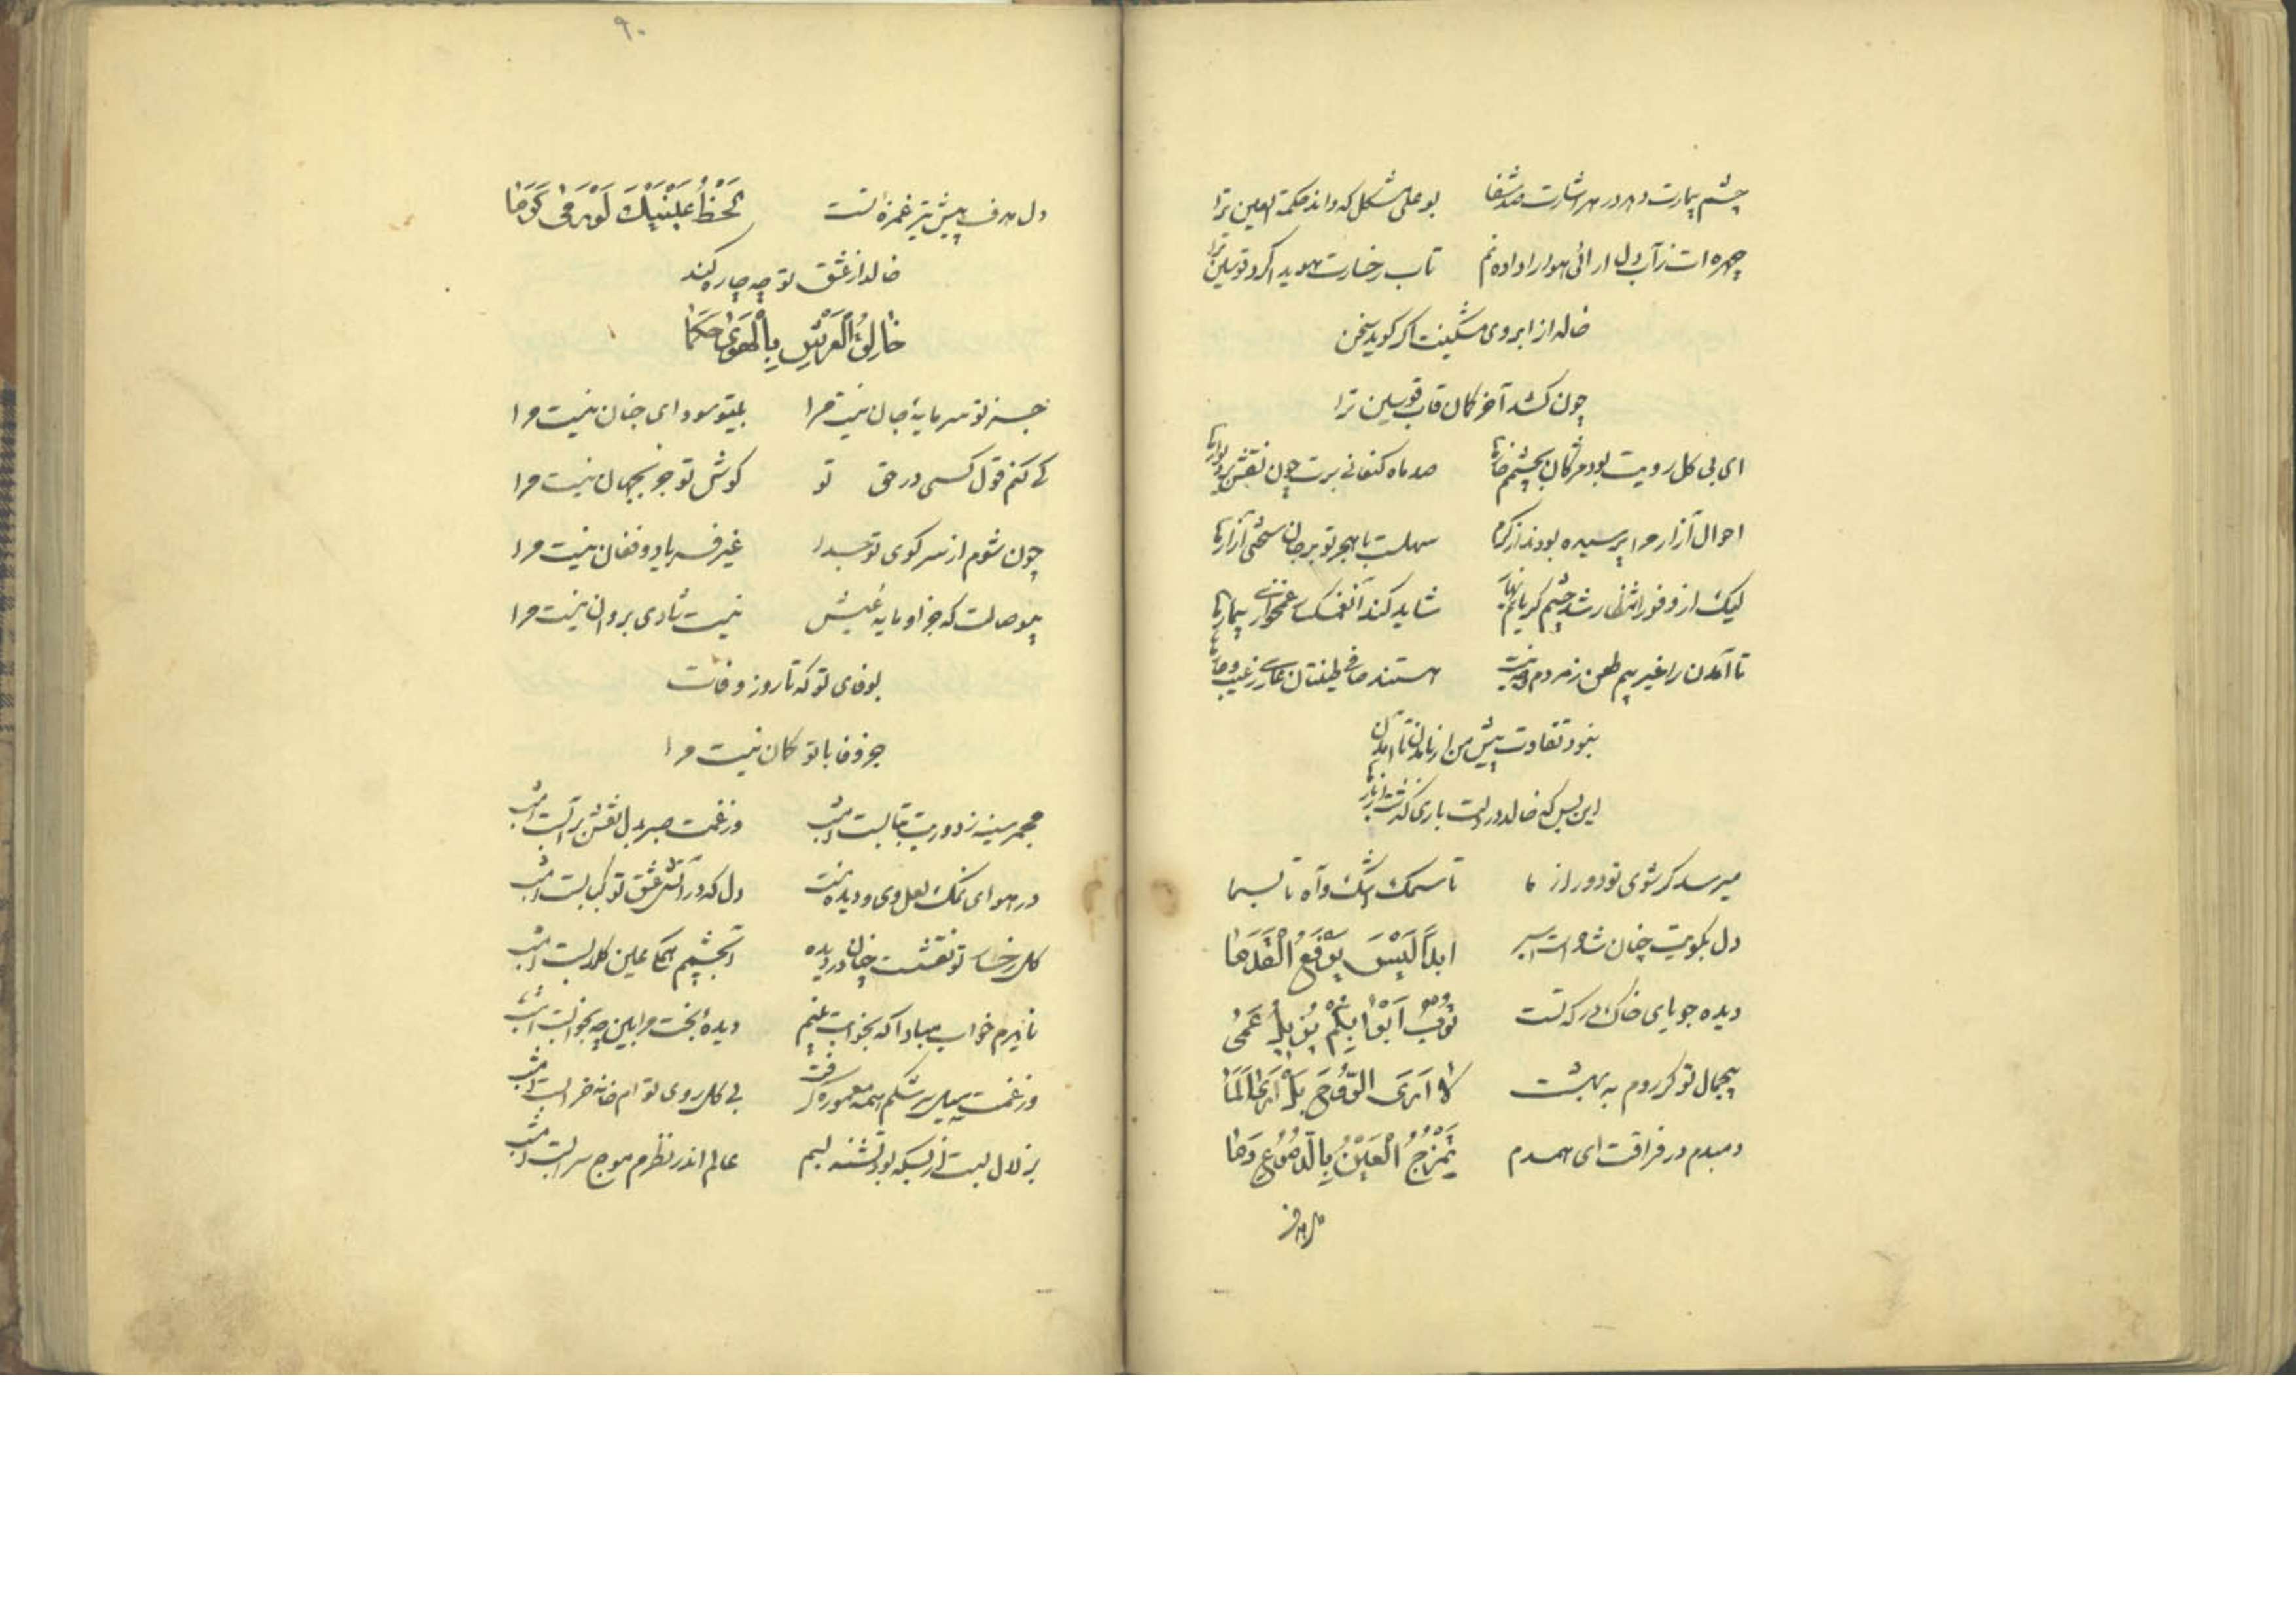 چشم بیمارت دهد در هر اشارت صد شفا بو علی مشکل که داند حکمة العین ترا
چهره ات ز آب دل ارائی هوا را داده نم تاب رخسارت هویدا کرد قوسین ترا
خالد از ابروی مشکینت اگر کوید سخن
چون کشد آخر کمان قاب قوسین ترا
ای بی کل رویت بود مژکان بچشمم خارها صد ماه کنعانی برت چون نقش بر دیوارها
احوال آزار مرا پرسیده بودند از کرم سهلست با هجر تو بر جان سختی آزارها
لیک از وفور انتظار شد چشم کریانم شاید کند آنغمکسار غمخواری بیمارها
تا آمدن را غیر بیم طعن ز مردم وجه نیست هستند صافی طینتان عاری ز عیب و عارها
نبود تفاوت پیش من از نامدن تا آمدن
این بس که خالد در دلت باری کذشت از بارها
میرسد کر شوی تو دور از ما تا سمک اشک و آه تا بسما
دل بکویت چنان شده است اسیر ابداً لَیْسَ یَرْفَعُ الْقَدَمَا
دیده جویای خاک درکه تست تُرْبُ اَبْوَابِکُمْ یُزِیلُ عَمیٰ
بیجمال تو کر روم به بهشت لا اَرَی الرَّوْحَ بَلْ اَرَی اَلَمَا
دمبدم در فراقت ای همدم تَمْزُجُ الْعَیْنُ بِالدُّمُوعِ دَمَا
۹۰
دل هدف پیش تیر غمزهٔ تست لَحْظُ عَیْنَیْكَ لَوْ رَمیٰ کَرَمَا
خالد از عشق تو چه چاره کند
خَالِقُ الْعَرْشِ بِالْهَویٰ حَکَمَا
جز تو سرمایهٔ جان نیست مرا بیتو سودای جنان نیست مرا
کی کنم قول کسی در حق تو کوش تو جز بجهان نیست مرا
چون شوم از سر کوی تو جدا غیر فریاد و فغان نیست مرا
بیوصالت که جز او مایه عیش نیست شادی بروان نیست مرا
بوفای تو که تا روز وفات
جز وفا با تو کمان نیست مرا
مجمر سینه ز دوریت بتابست امشب وز غمت صبر بدل نقش بر آبست امشب
در هوای نمک لعل وی و دیده تست دل که در آتش عشق تو کبابست امشب
کل رخسار تو نقشست چنان در دیده که بچشمم همکی عین کلابست امشب
تا نبرم خواب مبادا که بخوابت بینم دیدهٔ بخت مرا بین چه بخوابست امشب
وز غمت سیل سرشکم همه معموره کرفت بی کل روی تو ام خانه خرابست امشب
بزلال لبت از بسکه بود تشنه لبم عالم اندر نظرم موج سرابست امشب